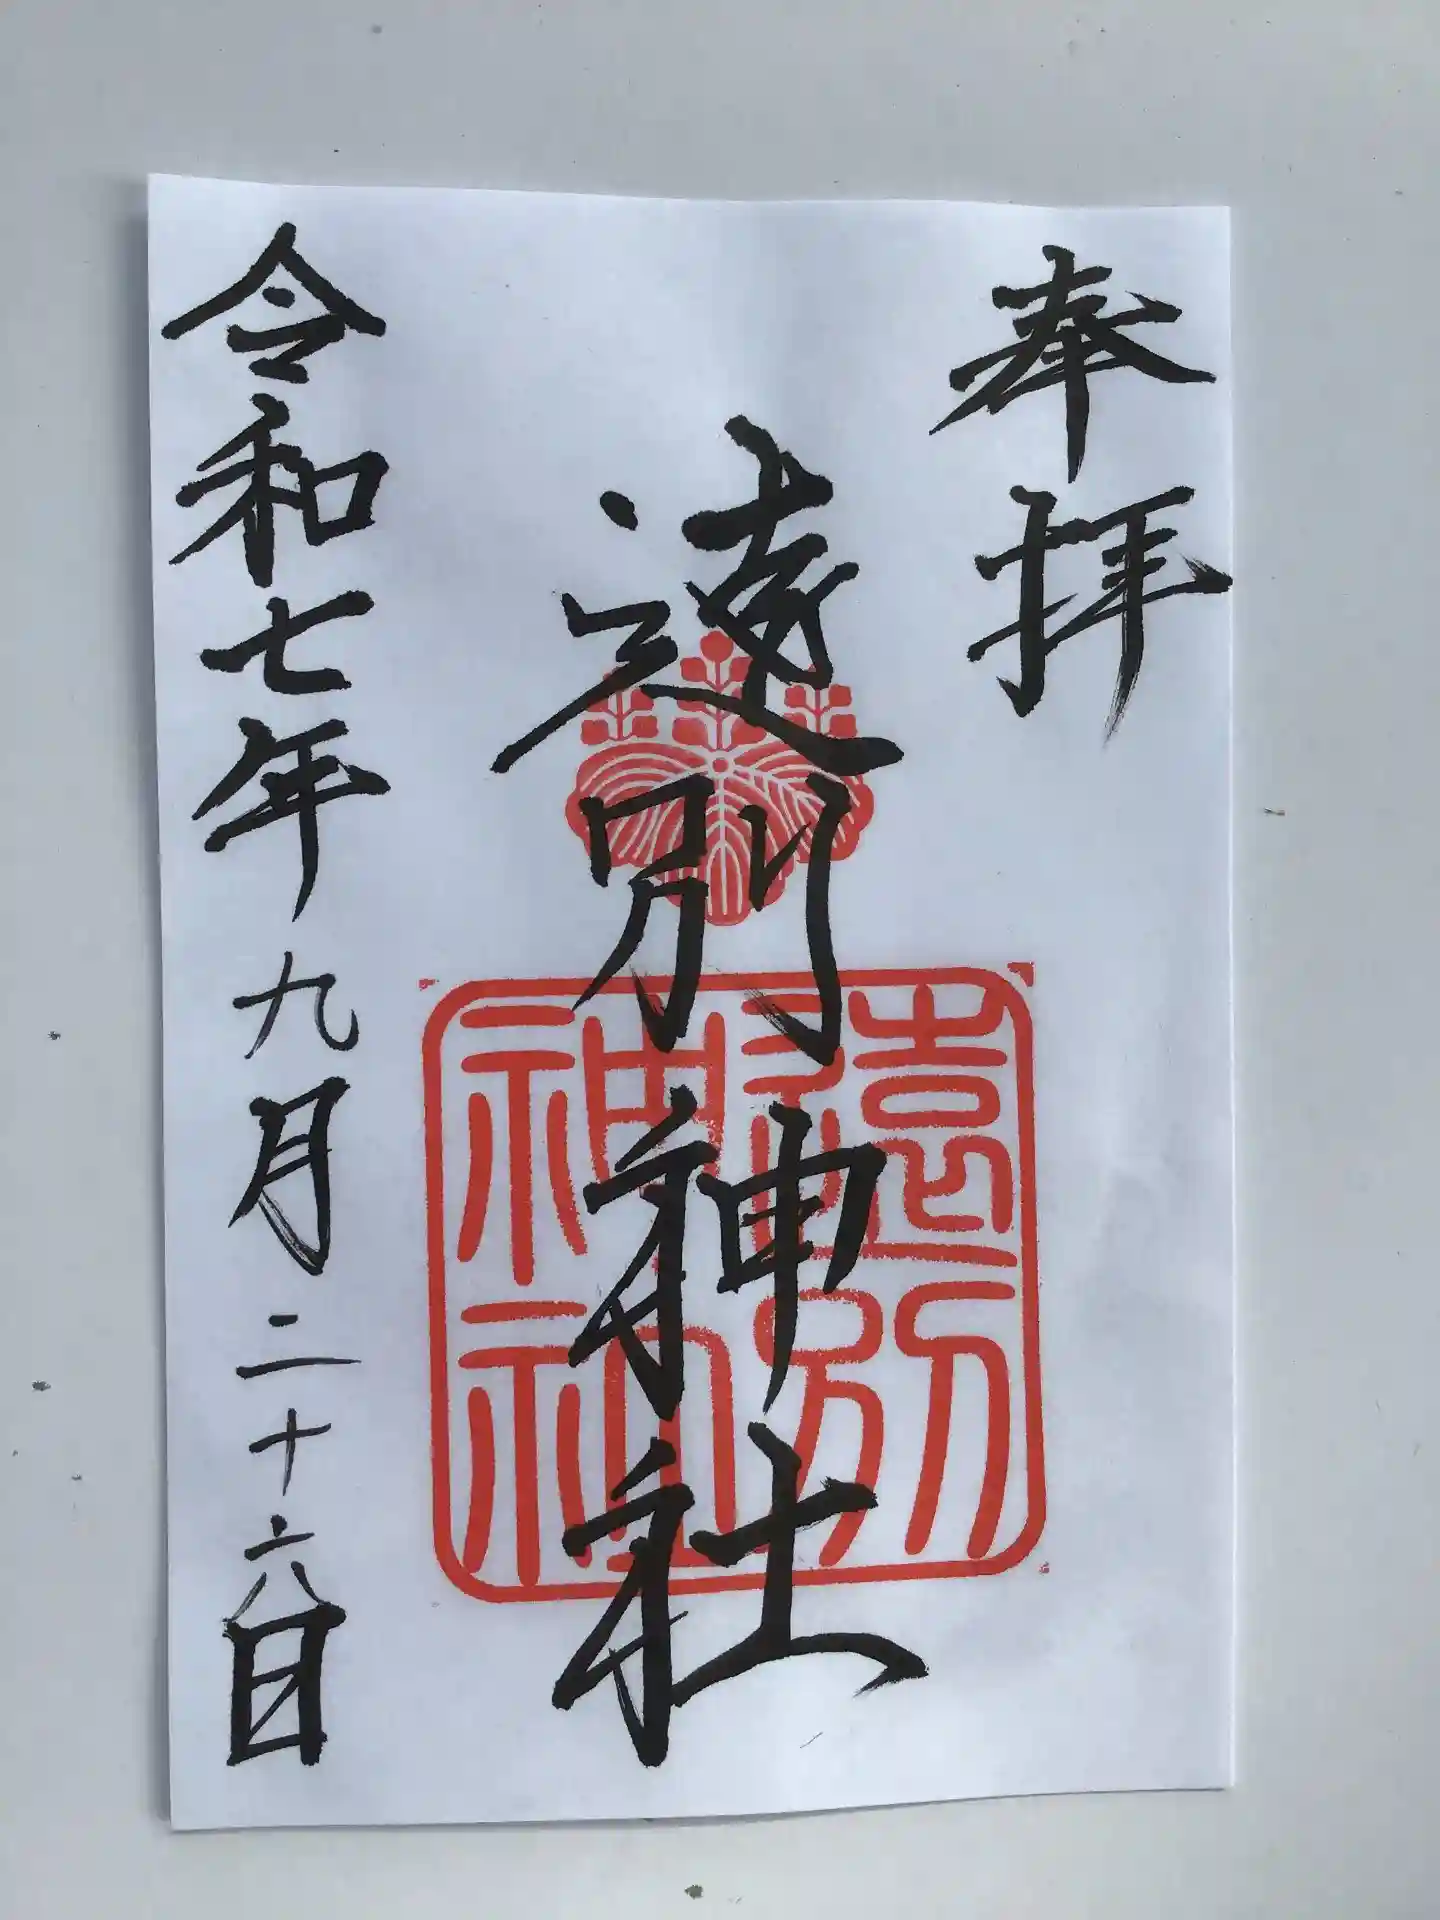 奉拝
遠別神社
遠別
神社
令和七年九月二十六日